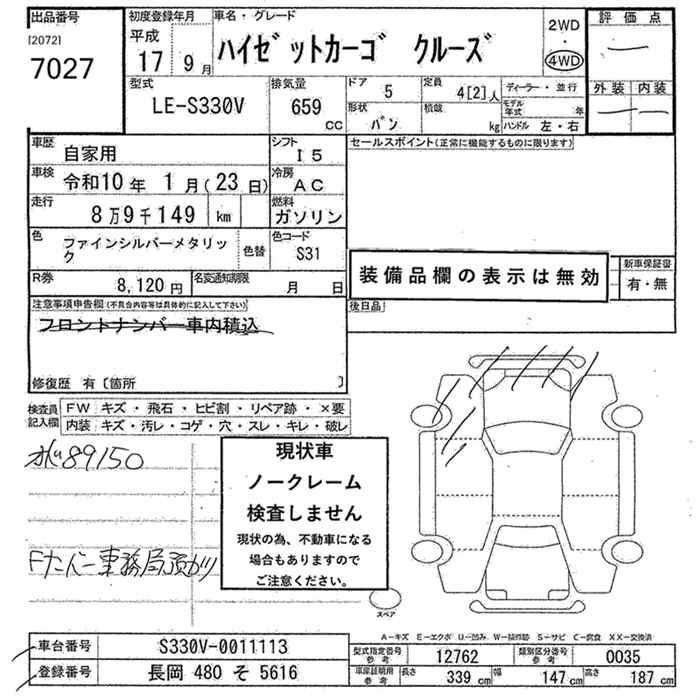 出品番号
[2072]
7027
初度登録年月
平成
17 9月
車名・グレード
ハイゼットカーゴ クルーズ
2WD
・
4WD
評価点
外装 内装
型式
LE-S330V
排気量
659 CC
ドア 5
形状 バン
定員 4[2]人
積載 kg
ディーラー・並行
モデル年式 年
ハンドル 左・右
車歴 自家用
シフト I5
セールスポイント(正常に機能するものに限ります)
車検 令和10年 1月(23日)
冷房 AC
走行 8万9千149 km
燃料 ガソリン
色 ファインシルバーメタリック
色替
色コード S31
装備品欄の表示は無効
新車保証書
有・無
R券 8,120円
名変通知期限 月 日
後日品
注意事項申告欄(不具合内容等は具体的に記入して下さい)
フロントナンバー車内積込
修復歴 有〔箇所 〕
検査員記入欄
FW キズ・飛石・ヒビ割・リペア跡・×要
内装 キズ・汚レ・コゲ・穴・スレ・キレ・破レ
89150
現状車
ノークレーム
検査しません
現状の為、不動車になる
場合もありますので
ご注意ください。
Fナンバー事務局預かり
スペア
A-キズ E-エクボ U-凹み W-補修跡 S-サビ C-腐食 XX-交換済
車台番号 S330V-0011113
型式指定番号 参考 12762
類別区分番号 参考 0035
登録番号 長岡 480 そ 5616
車庫証明用 参考
長さ 339 cm
幅 147 cm
高さ 187 cm